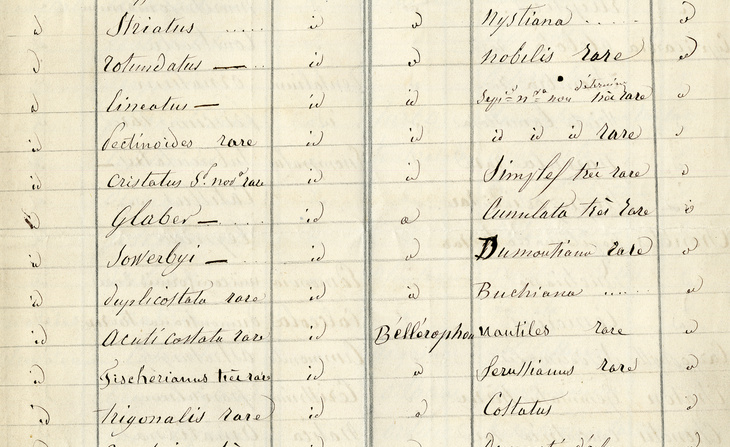 id Striatus ..... id id Nystiana ..... id
id rotundatus — .. id id nobilis rare id
id lineatus — id id non déterminé très rare id
id Pectinoides rare id id id id id rare id
id Cristatus rare id id Simplex très rare id
id Glaber — ..... id id Cumulata très rare id
id Sowerbyi — .... id id Dumontiana rare id
id duplicostata rare id id Buchiana ..... id
id Acuticostata rare id Béllérophon nautiles rare id
id Fischerianus très rare id id ferussianus rare id
id trigonalis rare id id Costatus id